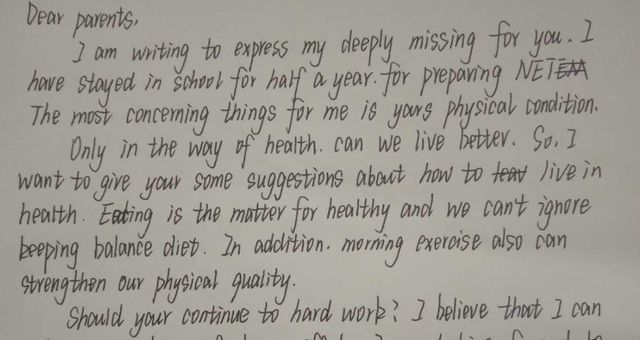 Dear parents,
I am writing to express my deeply missing for you. I
have stayed in school for half a year. for preparing NET
The most concerning things for me is yours physical condition.
Only in the way of health. can we live better. So, I
want to give your some suggestions about how to live in
health. Eating is the matter for healthy and we can't ignore
keeping balance diet. In addition. morning exercise also can
strengthen our physical quality.
Should your continue to hard work? I believe that I can